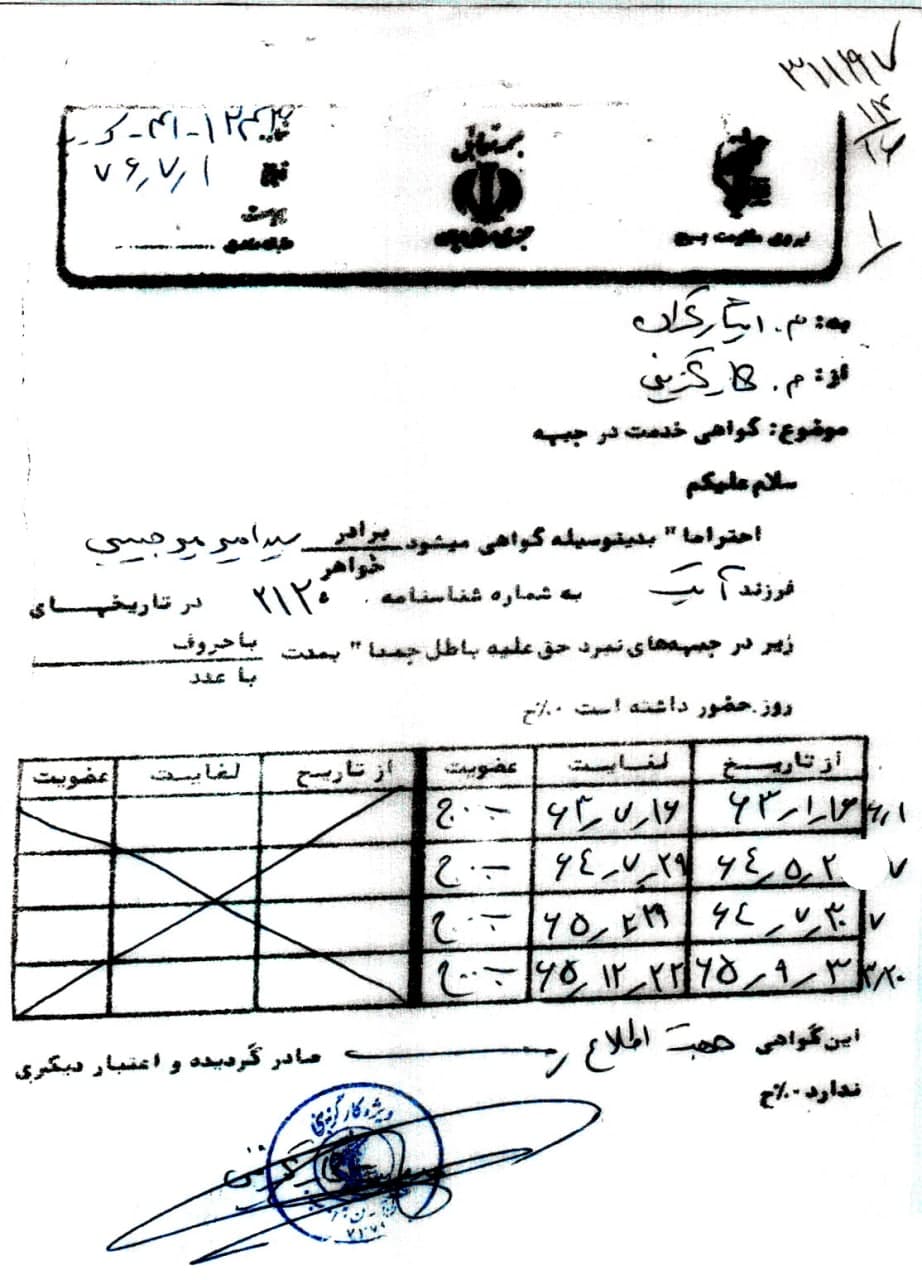 ۳۱۱۹۷
۱۴
۱۶
۱
بسمه تعالی
شماره ۱۲۴۲-۴۱-ک
تاریخ ۷۶/۷/۱
پیوست
طبقه بندی
نیروی مقاومت بسیج
جمهوری اسلامی ایران
به: م. ایثارگران
از: م. کارگزینی
موضوع: گواهی خدمت در جبهه
سلام علیکم
احتراما" بدینوسیله گواهی میشود برادر سید امیر میر حبیبی
خواهر
فرزند به شماره شناسنامه ۲۱۲۰ در تاریخهای
زیر در جبهه‌های نبرد حق علیه باطل جمعا" بمدت با حروف
با عدد
روز حضور داشته است ٪۰ح
از تاریخ لغایت عضویت از تاریخ لغایت عضویت
۶۳/۱/۱۶ ۶۳/۷/۱۶
۶۴/۵/۲ ۶۴/۷/۲۹ ۷
۶۴/۷/۳۰ ۷
۶۵/۹/۳ ۶۵/۱۲/۲۲
این گواهی جهت اطلاع صادر گردیده و اعتبار دیگری
ندارد ٪۰ح
ویژه کارگزینی